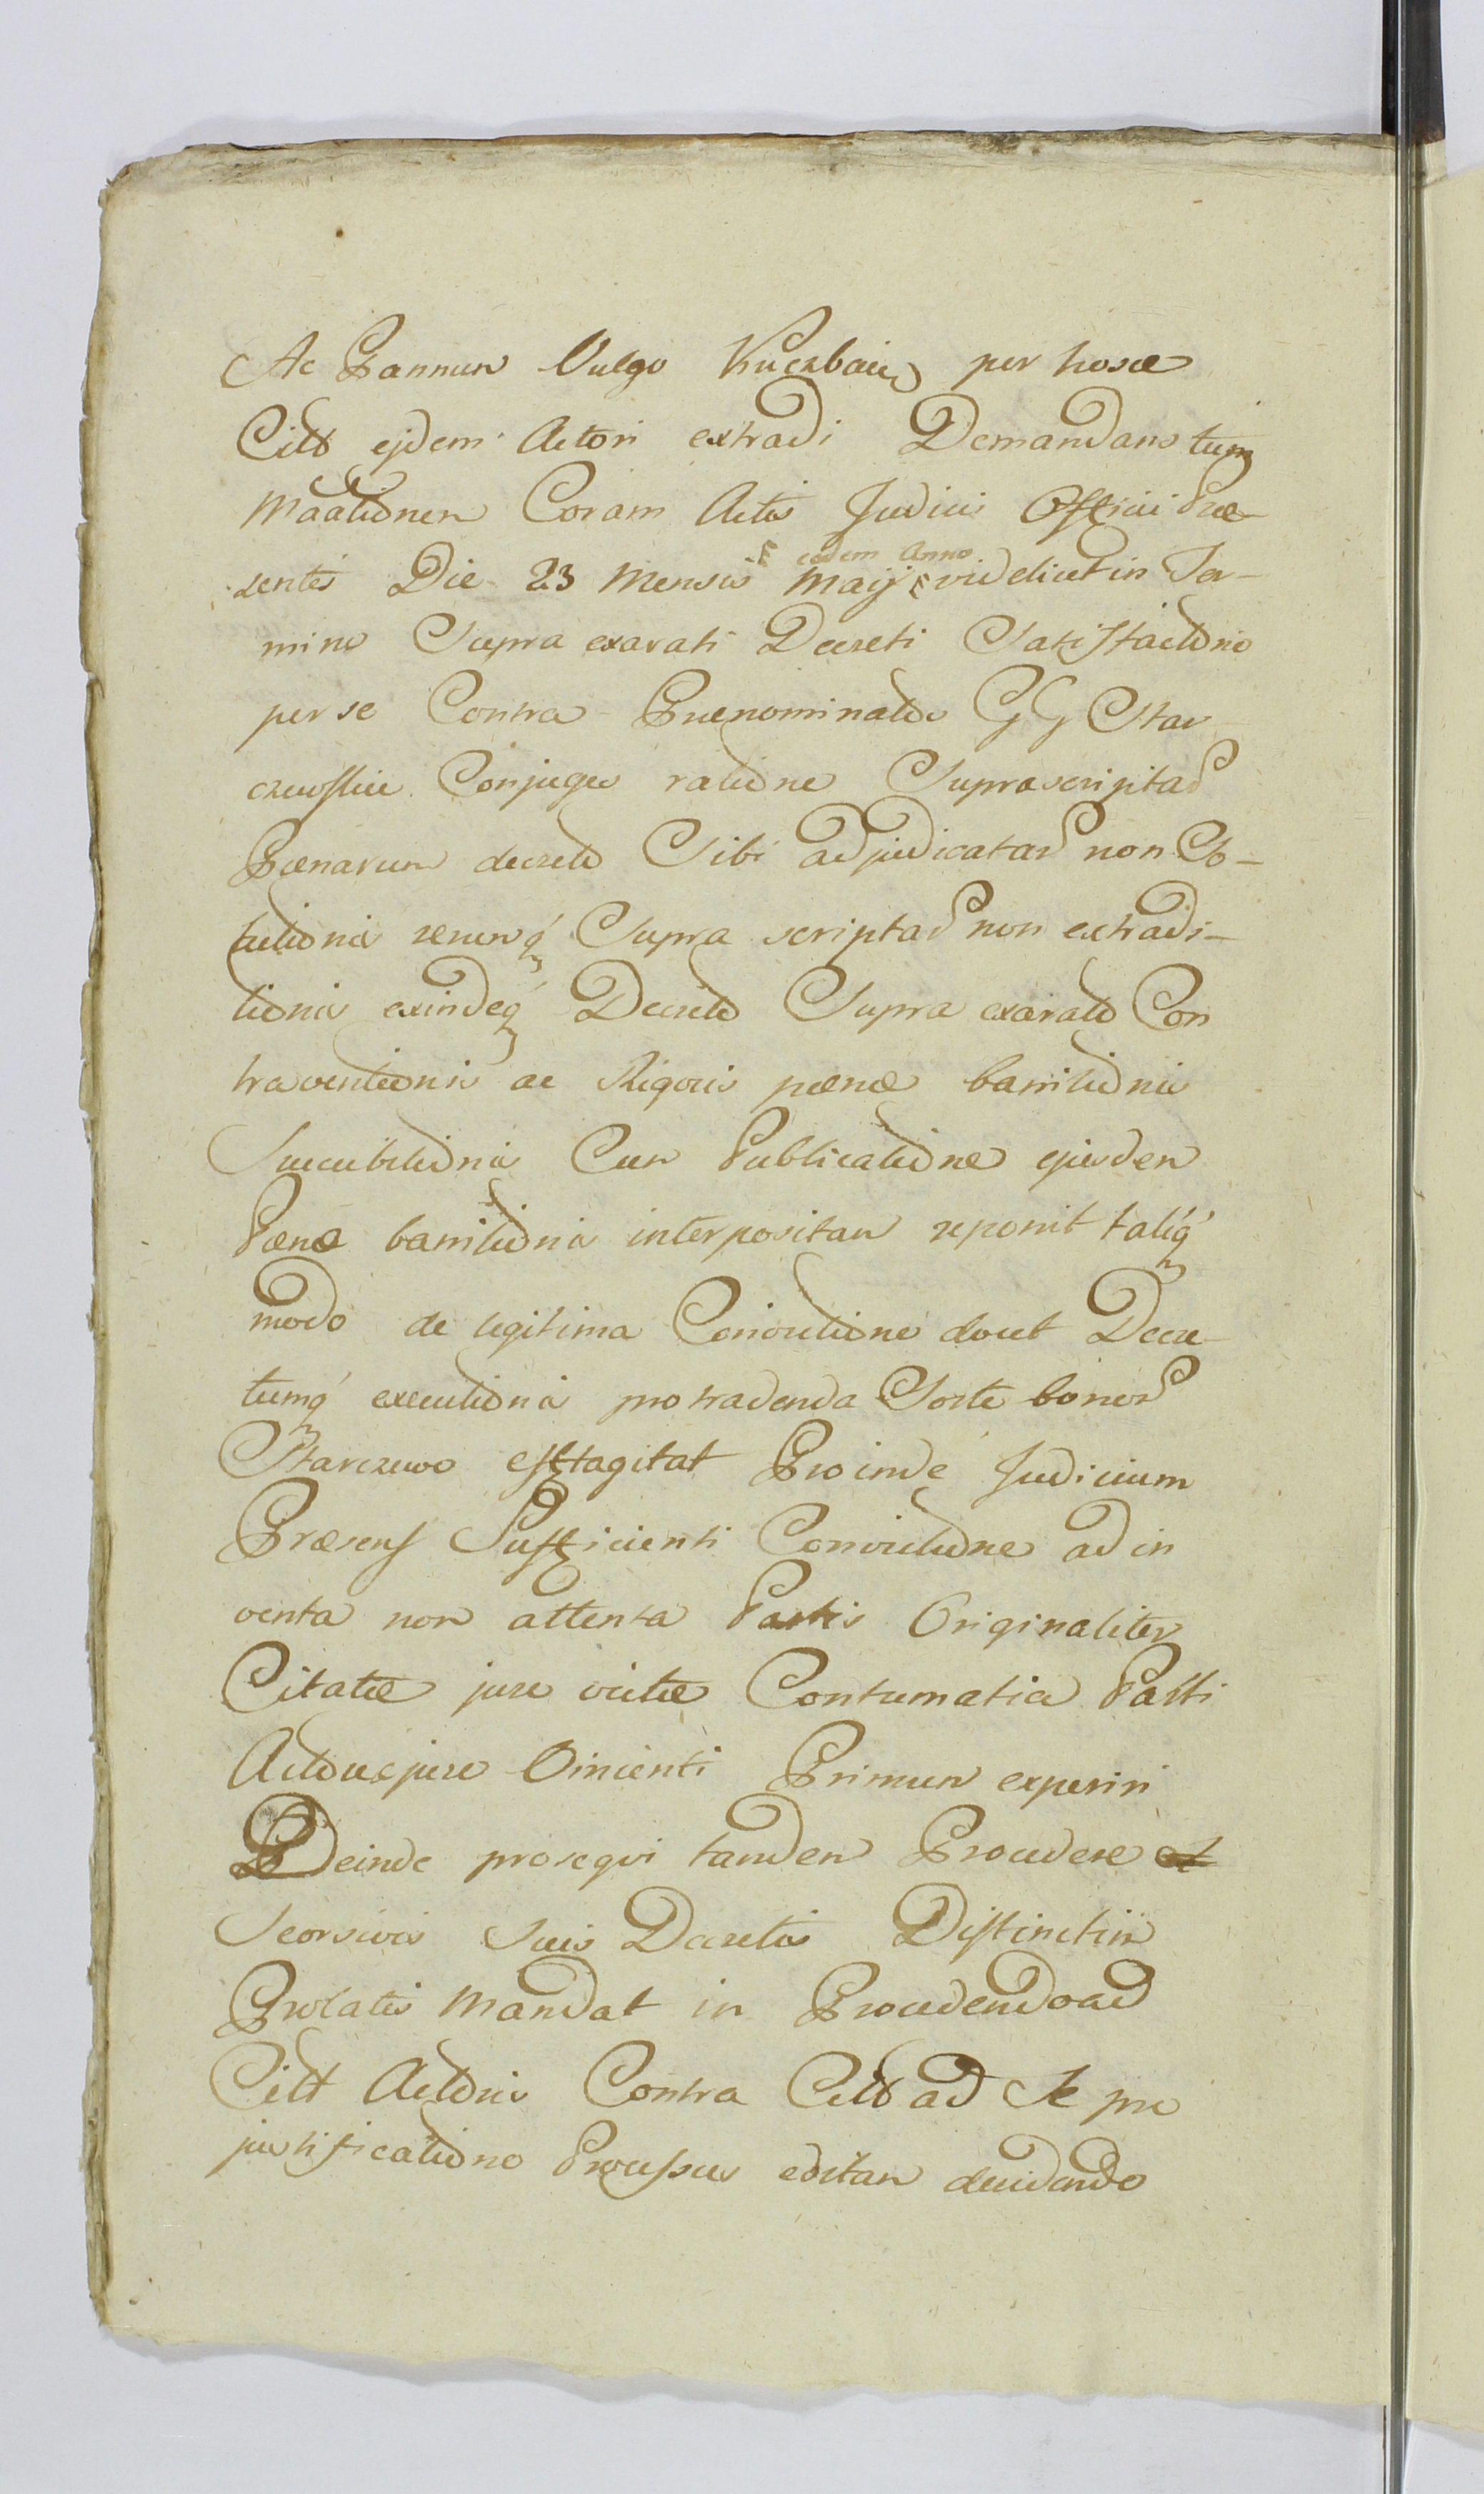 Ac Pannum Vulgo Kuczbaię per hosce
Citt ejdem Actori extradi Demandans tum
Maa͠tionem Coram Actis Judicii Officii Præ-
sentis Die 23 Mensis Maij eodem Anno videlicet in Ter-
mino Supra exarati Decreti Satisfactione
per se Contra Prænominatos GG Star
czewskie Conjuges ratione Suprascriptar
Pœnarum decreto Sibi adjudicatar non So-
lutionis rerumq Supra scriptar non extradi-
tionis exindeq Decreto Supra exarato Con
traventionis ac Rigoris pœnæ bannitionis
Succubitionis Cum Publicatione ejusdem
Pœnæ bannitionis interpositam reponit taliq
modo de legitima Convictione docet Decre-
tumq executionis pro tradenda Sorte bonor
Starczewo efflagitat Proinde Judicium
Præsens Sufficienti Convictione ad in
venta non attenta Partis Originaliter
Citatæ jure victæ Contumatia Parti
Actoreæ jure Vincenti Primum experiri
Deinde proseqvi tandem Procedere et
Seorsivis Suis Decretis Distinctim
Prolatis Mandat in Procedendo ad
Citt Actoris Contra Citt ad Se pro
justificatione Processus editam decidendo